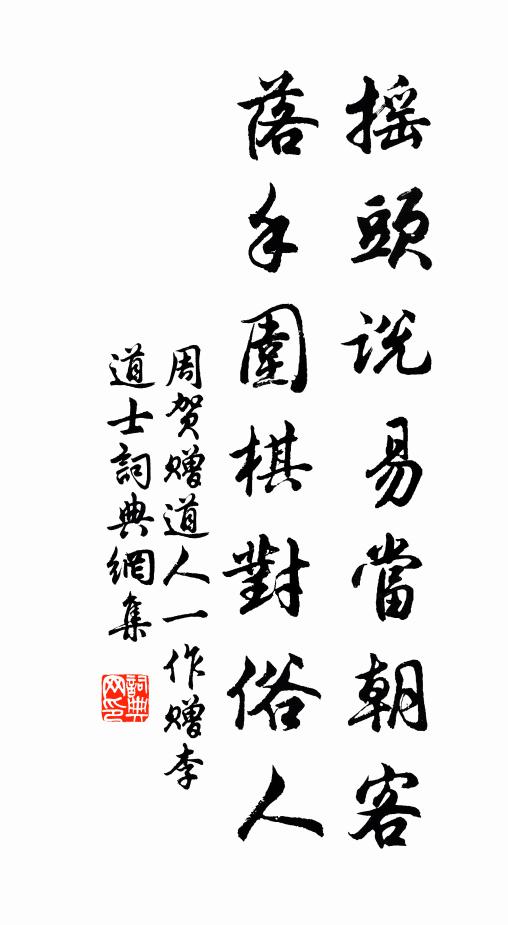 搖頭說易當朝客
落手圍棋對俗人
周贺赠道人一作赠李
道士詞典網集
詞典網印